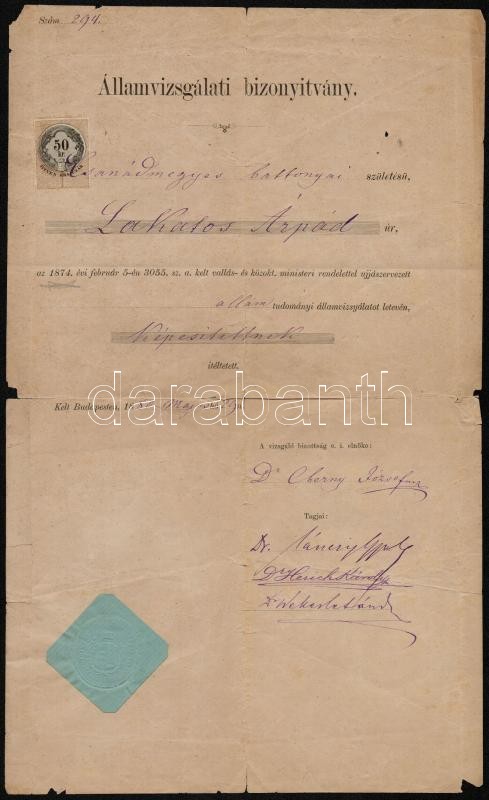 Szám 294.
Államvizsgálati bizonyitvány.
50
kr.
Csanádmegyei battonyai születésü,
Lakatos Árpád úr,
az 1874. évi február 5-én 3055. sz. a. kelt vallás- és közokt. ministeri rendelettel ujjászervezett
állam tudományi államvizsgálatot letevén,
képesitettnek
itéltetett.
darabanth
Kelt Budapesten, 18
A vizsgáló bizottság e. i. elnöke:
Dr Cherny József
Tagjai:
Dr.
Dr Herich Károly
Dr Wekerle Sándor